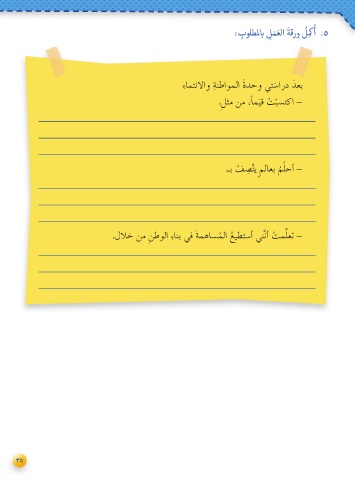 ٥. أُكمِلُ ورقةَ العَمَلِ بالمطلوبِ:
بعدَ دراسَتي وحدةَ المواطَنةِ والانتماءِ
– اكتسبْتُ قيَماً، من مثلِ:
– أحلُمُ بعالمٍ يتَّصِفُ بـ:
– تعلَّمتُ أنَّني أستطيعُ المُساهمةَ في بناءِ الوطنِ من خلالِ:
٣٥